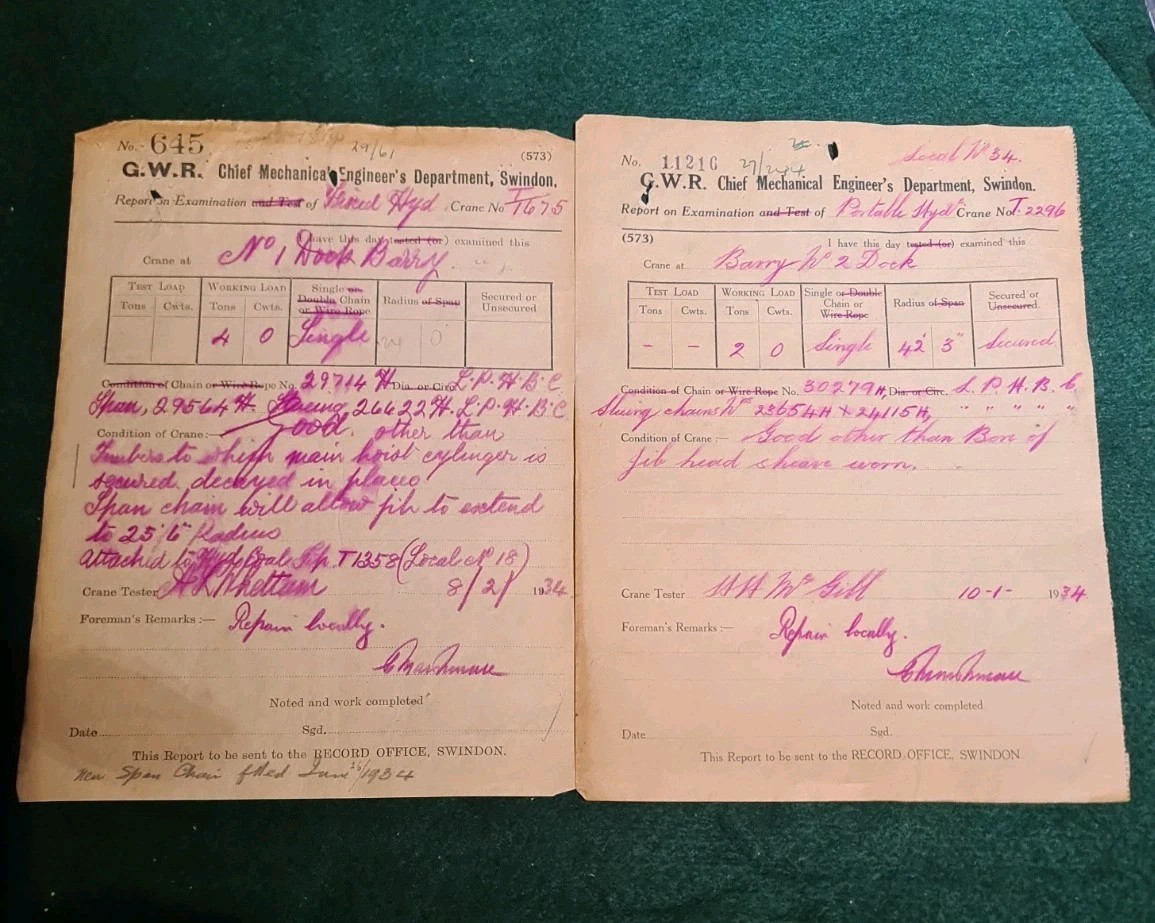 No. 645
29/61
(573)
G.W.R. Chief Mechanical Engineer's Department, Swindon.
Report on Examination and Test of Fixed Hyd Crane No T1675
I have this day tested (or) examined this
Crane at No 1 Dock Barry.
TEST LOAD WORKING LOAD Single or Double Chain or Wire Rope Radius of Span Secured or Unsecured
Tons Cwts. Tons Cwts.
4 0 Single 24 0
Condition of Chain or Wire Rope No. 29714 H Dia. or Circ. L.P.H.B.C.
Span, 29564 H. 26622 H. L.P.H.B.C
Condition of Crane:— Good. other than
Timbers to which main hoist cylinger is
secured, decayed in places
Span chain will allow jib to extend
to 25' 6" Radius
Attached to Hyd Coal Tip T1358 (Local No 18)
Crane Tester 8/2/ 1934
Foreman's Remarks:— Repair locally.
Noted and work completed
Date Sgd.
This Report to be sent to the RECORD OFFICE, SWINDON.
New Span Chain fitted June 26/1934
No. 11216 Local No 34.
G.W.R. Chief Mechanical Engineer's Department, Swindon.
Report on Examination and Test of Portable Hydc Crane No T. 2296
(573) I have this day tested (or) examined this
Crane at Barry No 2 Dock
TEST LOAD WORKING LOAD Single or Double Chain or Wire Rope Radius of Span Secured or Unsecured.
Tons Cwts. Tons Cwts.
- - 2 0 Single 42' 3" Secured
Condition of Chain or Wire Rope No. 30279 H, Dia. or Circ. L.P.H.B.C
Sluing chains No 23654H & 24115H, " " " " "
Condition of Crane:— Good other than Bore of
jib head sheave worn.
Crane Tester H H Mc Gill 10-1- 1934
Foreman's Remarks:— Repair locally.
Noted and work completed
Date Sgd.
This Report to be sent to the RECORD OFFICE, SWINDON.